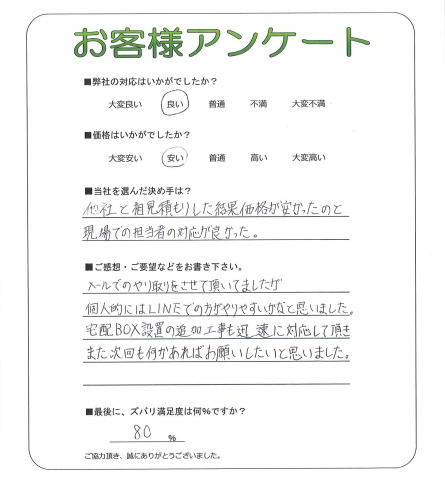 お客様アンケート
■弊社の対応はいかがでしたか?
大変良い 良い 普通 不満 大変不満
■価格はいかがでしたか?
大変安い 安い 普通 高い 大変高い
■当社を選んだ決め手は?
他社と相見積もりした結果価格が安かったのと
現場での担当者の対応が良かった。
■ご感想・ご要望などをお書き下さい。
メールでのやり取りをさせて頂いてましたが
個人的にはLINEでの方がやりやすいかなと思いました。
宅配BOX設置の追加工事も迅速に対応して頂き
また次回も何かあればお願いしたいと思いました。
■最後に、ズバリ満足度は何%ですか?
80 %
ご協力頂き、誠にありがとうございました。